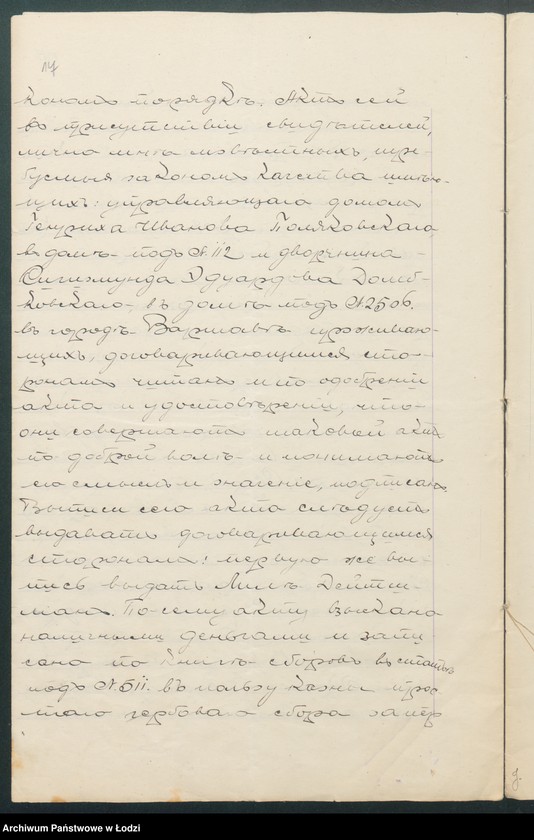 14
кономъ порядкѣ. Актъ сей
въ присутствіи свидѣтелей,
лично мнѣ извѣстныхъ, тре-
буемыя закономъ качества имѣю-
щихъ: управляющаго домомъ
Генриха Иванова Поляковскаго
въ домѣ подъ №112 и дворянина
Сигизмунда Эдуардова Домб-
ковскаго, въ домѣ подъ №2506.
въ городѣ Варшавѣ прожива-
ющихъ, договаривающимся сто-
ронамъ читанъ и по одобреніи
акта и удостовѣреніи, что
они совершаютъ таковый актъ
по доброй волѣ и понимаютъ
его смыслъ и значеніе, подписанъ
Выписи сего акта слѣдуетъ
выдавать договаривающимся
сторонамъ: первую же вы-
пись выдать Лилѣ Дейтш-
манъ. По сему акту взыскано
наличными деньгами и запи
сано по книгѣ сборовъ въ статьѣ
подъ №511. въ пользу казны прос
таго гербоваго сбора за пер
Archiwum Państwowe w Łodzi